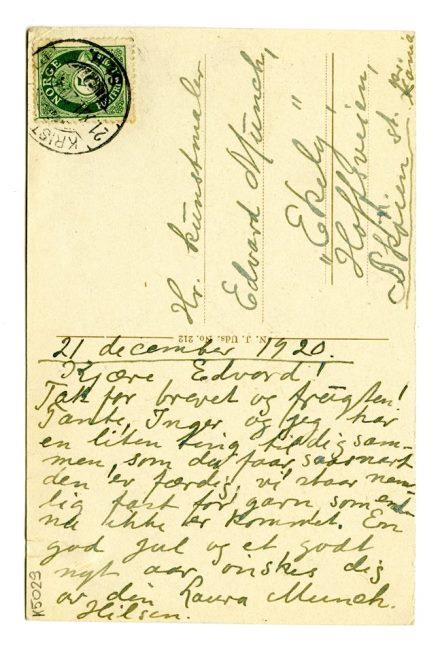 NORGE
KRIST
21
Hr. kunstmaler
Edvard Munch,
"Ekely"
Hoffsveien,
Skøien st.
N. J. Uds. No. 212
21 december 1920.
Kjære Edvard!
Tak for brevet og frugten!
Tante, Inger og jeg har
en liten ting til dig sam-
men, som du faar, saasnart
den er færdig, vi staar nem-
lig fast for garn som endnu
ikke er kommet. En
god jul og et godt
nyt aar ønskes dig
av din Laura Munch.
Hilsen.
K5023